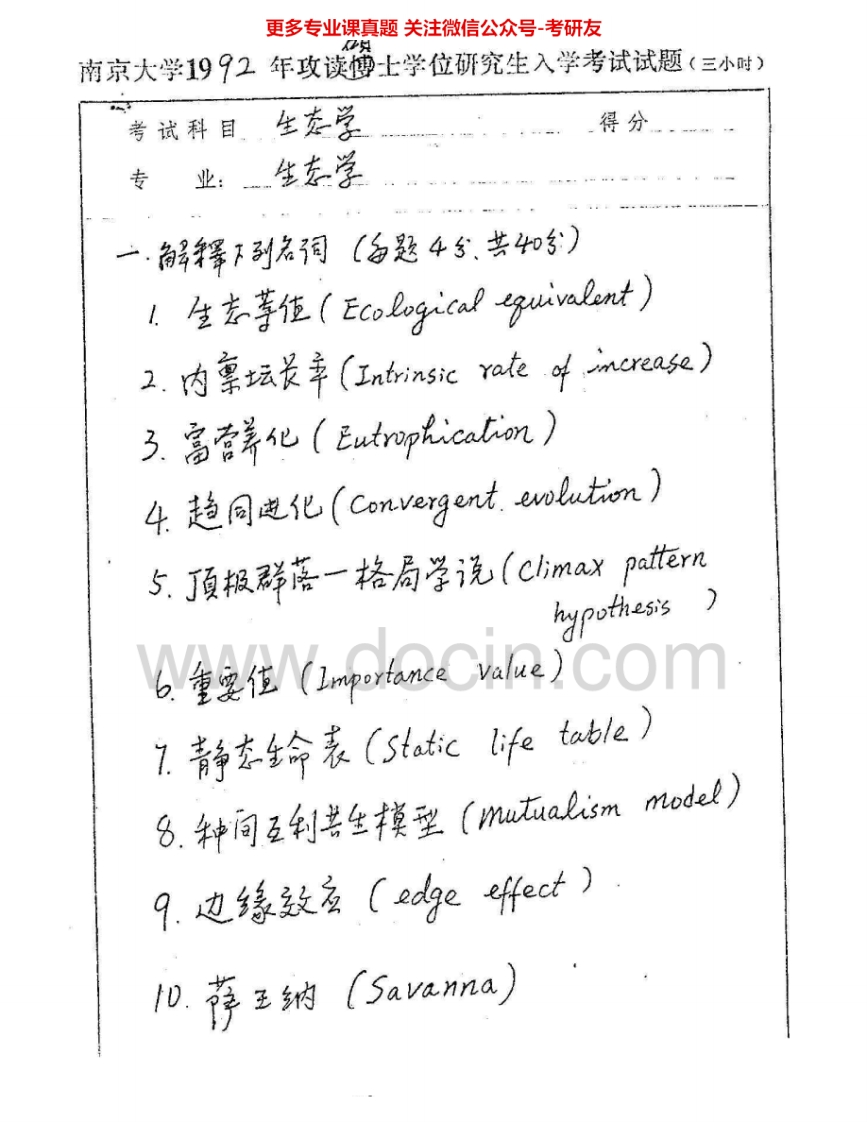 更多专业课真题 关注微信公众号-考研友
硕
南京大学1992年攻读博士学位研究生入学考试试题(三小时)
考试科目 生态学 得分
专 业: 生态学
一.解釋下列名词 (每题4分、共40分)
1. 生态等值(Ecological equivalent)
2. 内禀增长率(Intrinsic rate of increase)
3. 富营养化(Eutrophication)
4. 趋同进化(Convergent evolution)
5. 頂极群落一格局学说(Climax pattern
hypothesis)
www.docin.com
6. 重要值(Importance value)
7. 静态生命表(Static life table)
8. 种间互利共生模型(mutualism model)
9. 边缘效应(edge effect).
10. 萨王纳(Savanna)